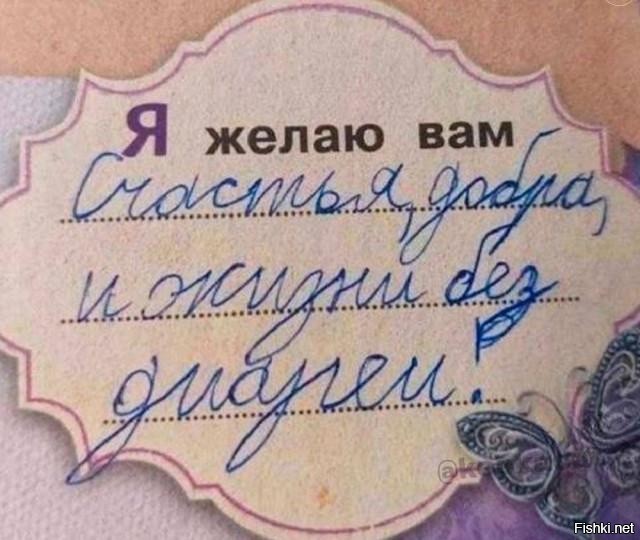 Я желаю вам
Счастья, добра,
и жизни без
диареи!
Fishki.net